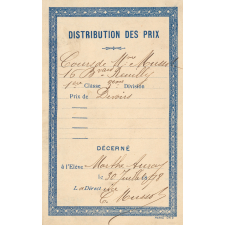 DISTRIBUTION DES PRIX
Cours de Mme Musset
16 Bd Reuilly
1ère Classe 2ème Division
Prix de Devoirs
DÉCERNÉ
à l'Elève Marthe
le 30 Juillet 78
La Directrice
C. Musset